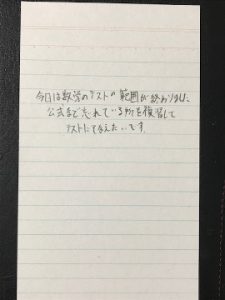 今日は数学のテストの範囲が終わりました
公式まで忘れている所を復習して
テストにそなえたいです